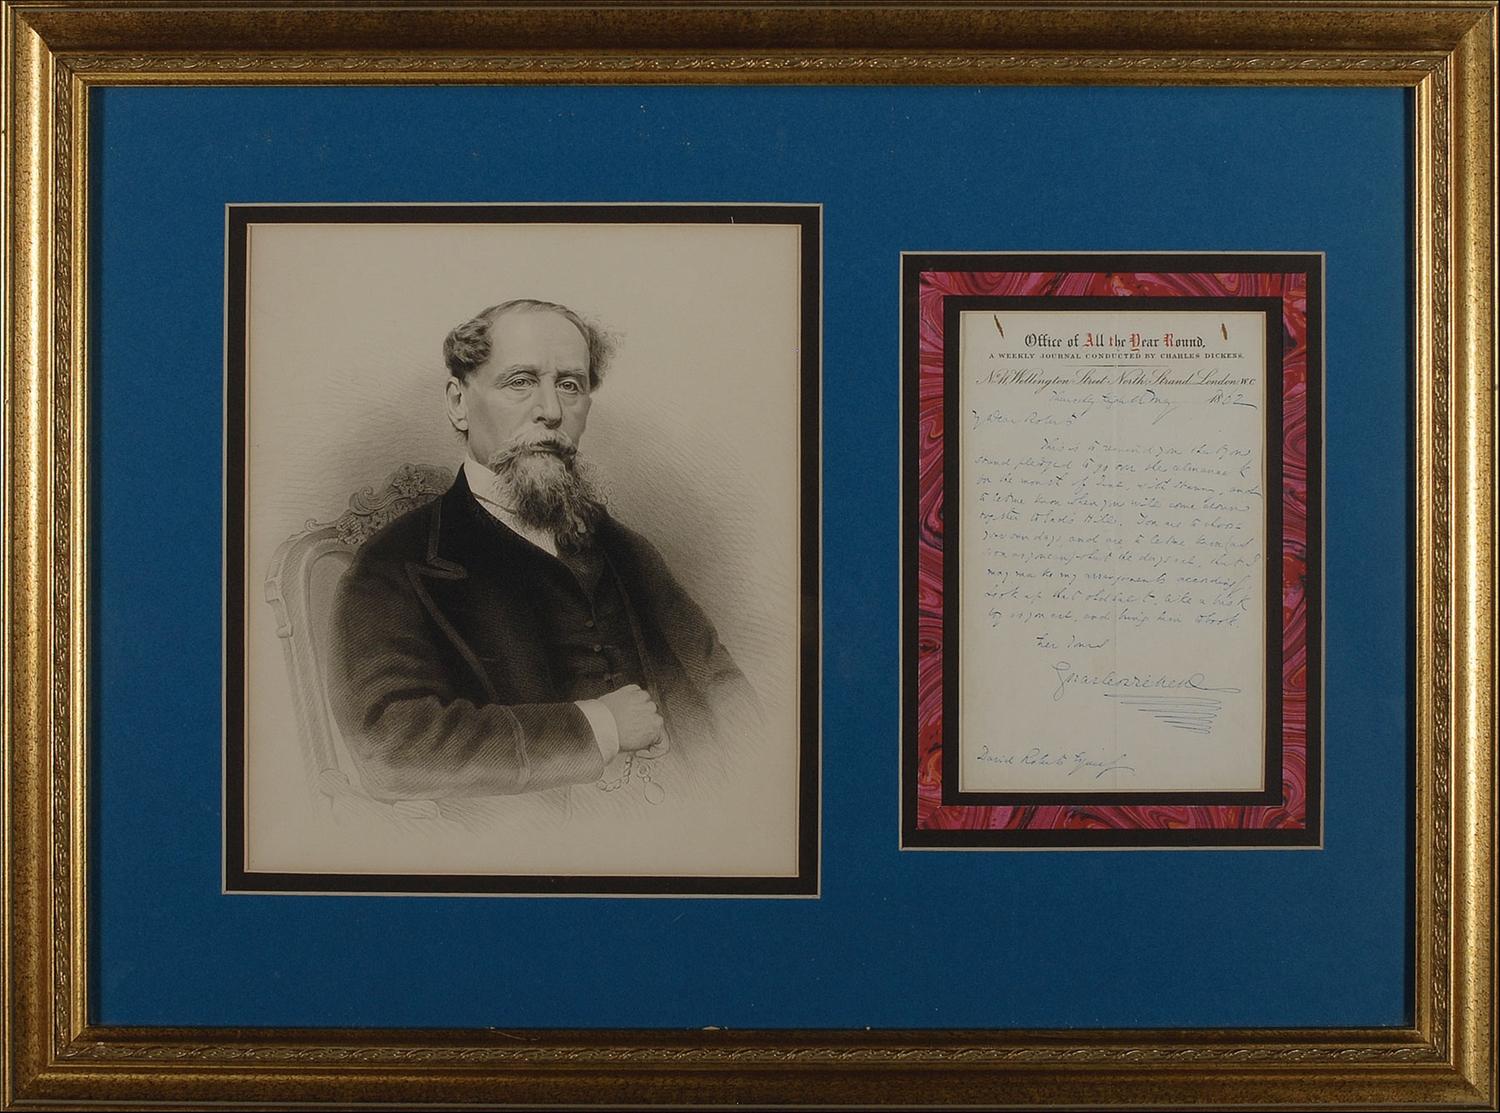 Office of All the Year Round,
A WEEKLY JOURNAL CONDUCTED BY CHARLES DICKENS.
No. 11, Wellington Street North, Strand, London W.C.
Thursday Eighth May 1862
My Dear Roberts
This is to remind you that you
stand pledged to go over the almanack
for the month of June, with Stanny, and
to let me know when you will come down
together to Gad's Hill. You are to choose
your own days and are to let me know as
soon as you can what the days are, that I
may make my arrangements accordingly
Look up that, like a brick
as you are, and bring him to book.
Ever Yours
Charles Dickens
David Roberts Esquire